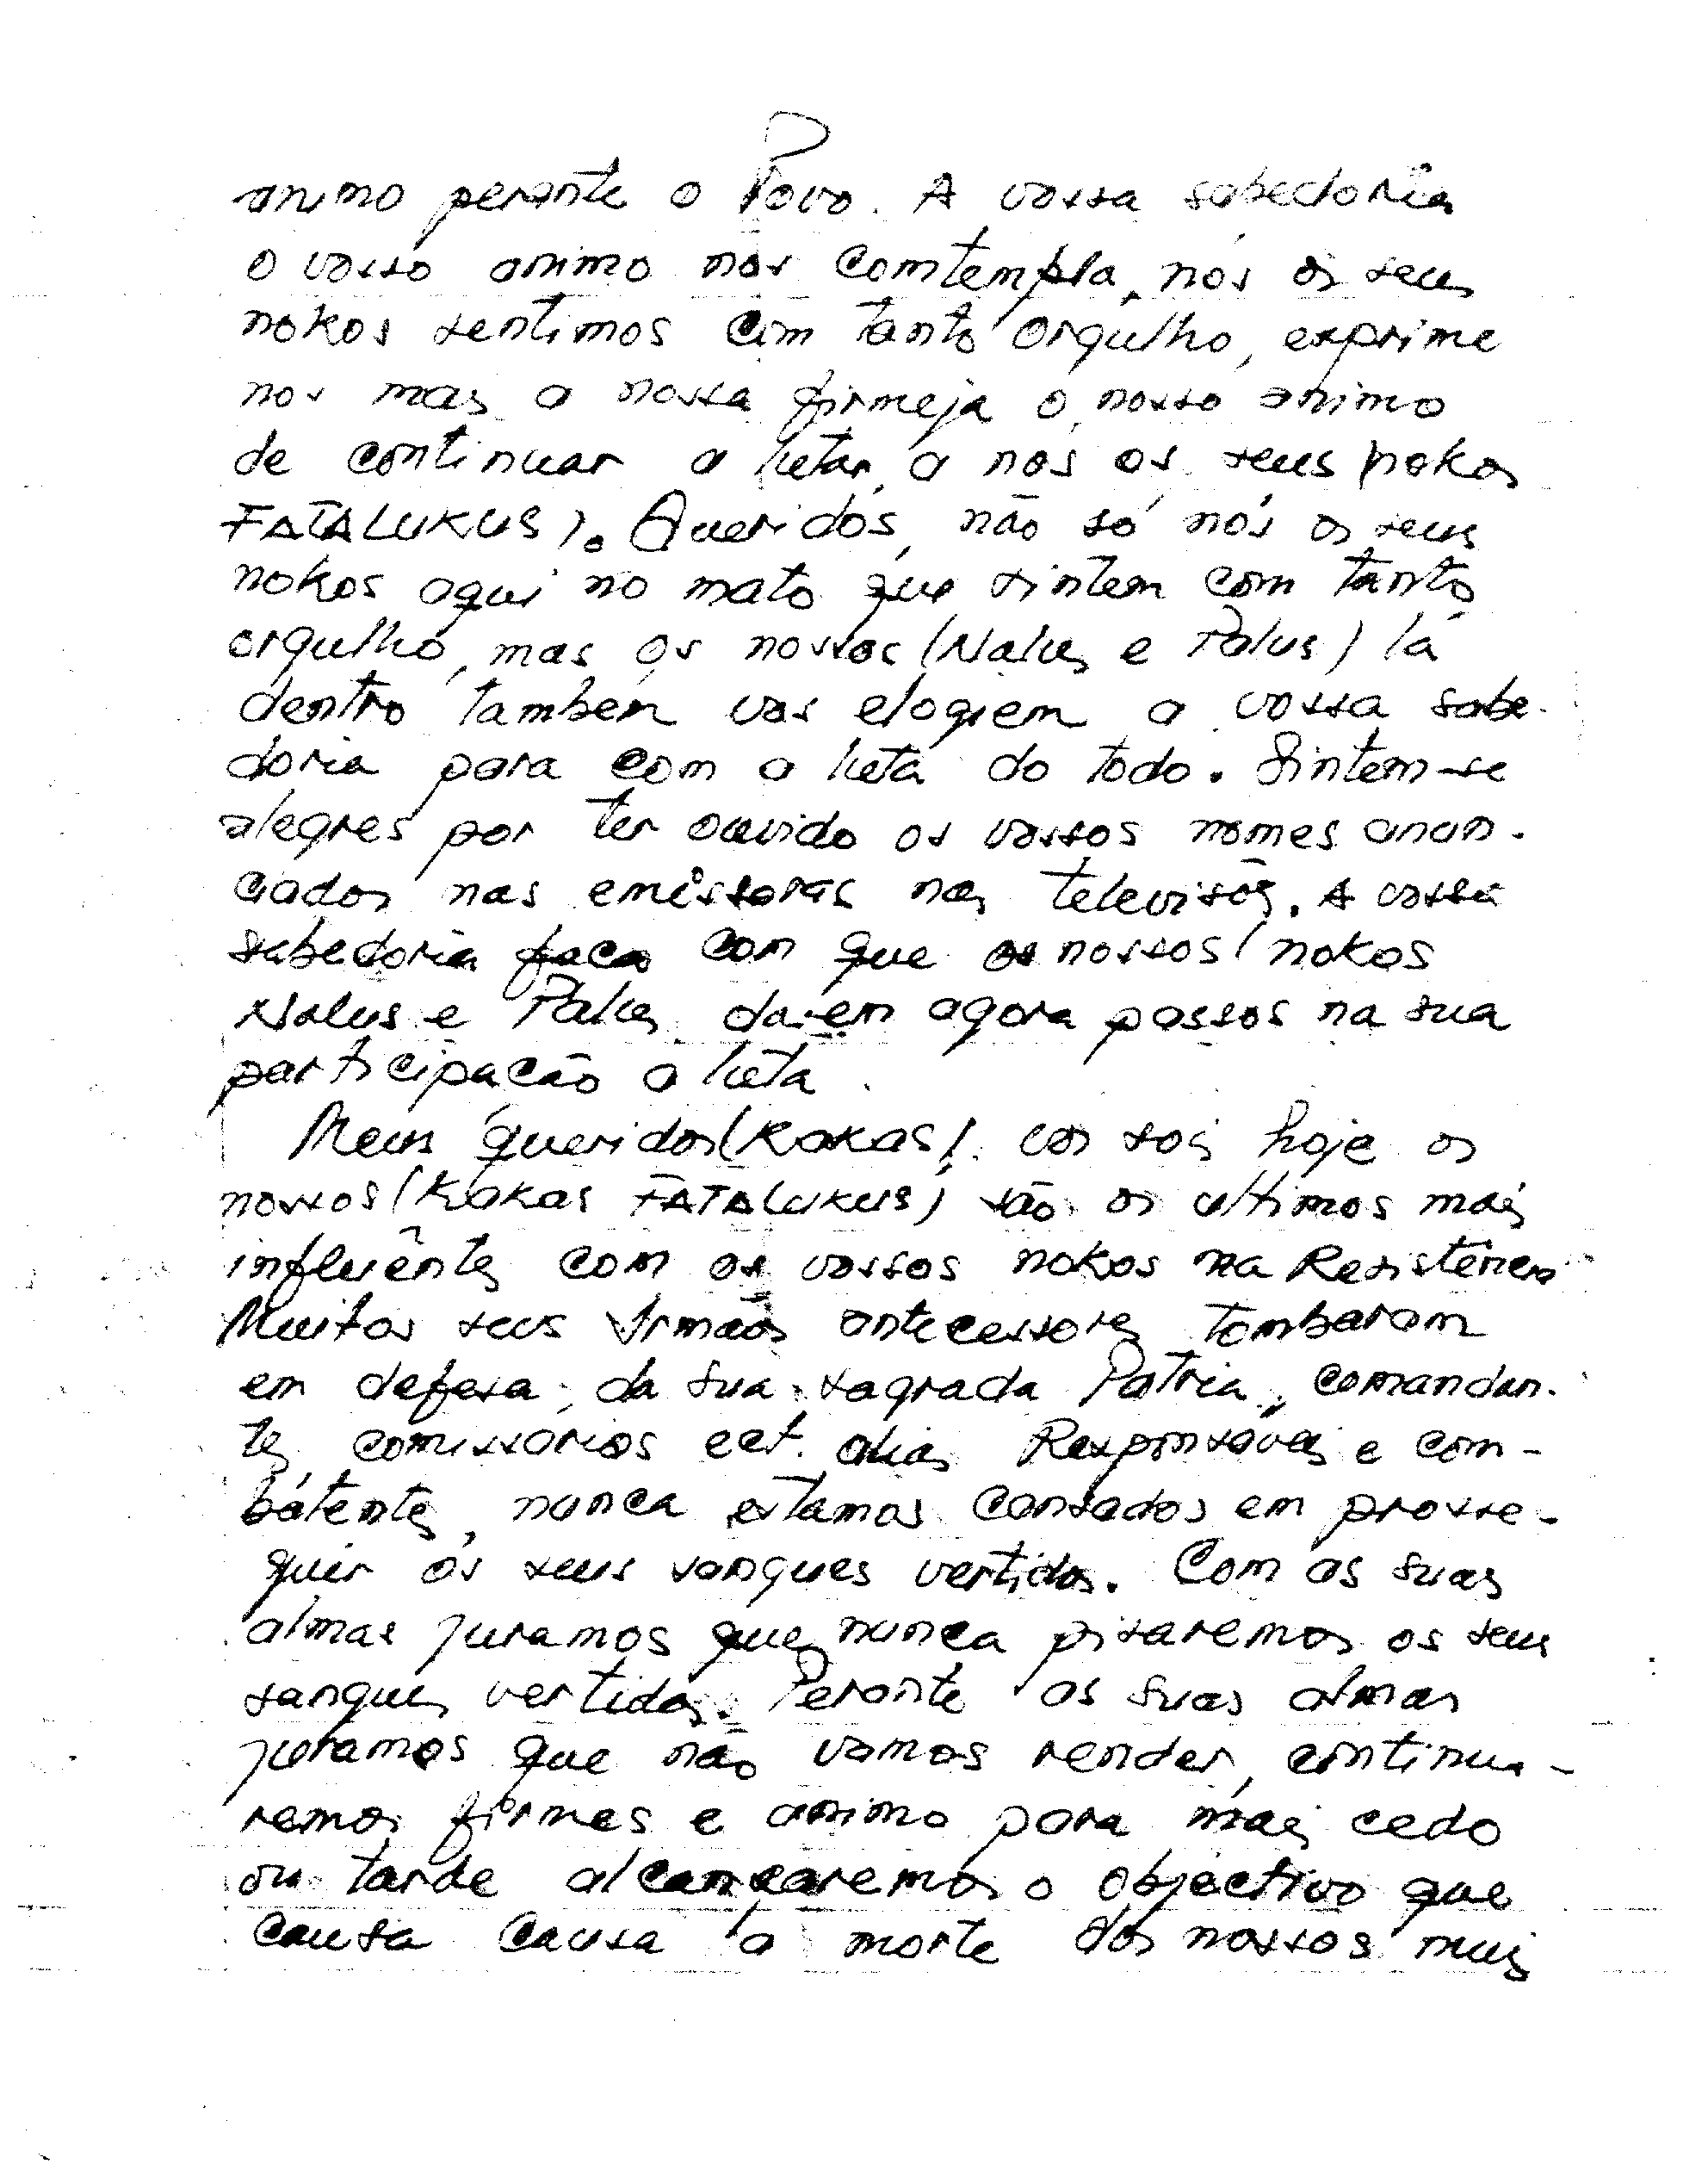 animo perante o Povo. A vossa sabedoria
o vosso animo nos comtempla, nós os seus
nokos sentimos com tanto orgulho, exprime
nos mas a nossa firmeja o nosso animo
de continuar a luta, a nós os seus (nokos
FATALUKUS). Queridos, não só nós os seus
nokos aqui no mato que sintem com tanto
orgulho, mas os nossos (Nalus e Palus) lá
dentro tambem vos elogiem a vossa sabe-
doria para com a luta do todo. Sintem-se
alegres por ter ouvido os vossos nomes anun-
ciados nas emissoras nas televisões. A vossa
sabedoria faca com que os nossos (nokos
Nalus e Palus darem agora passos na sua
participacão a luta.
Meus queridos (Kakas). vos sois hoje os
nossos (Kakas FATALUKUS) são os ultimos mais
influêntes com os vossos nokos na Resistência
Muitos seus Irmãos antecessores tombaram
em defesa da sua sagrada Patria, comandan-
tes, comissários ect. alias Responsaveis e com-
batentes, nunca estamos cansados em prosse-
guir os seus sangues vertidos. Com as suas
almas juramos que nunca pisaremos os seus
sangues vertidos. Perante as suas almas
juramos que não vamos render, continua-
remos firmes e animo para mais cedo
ou tarde alcançaremos o objectivo que
causa causa a morte dos nossos muis